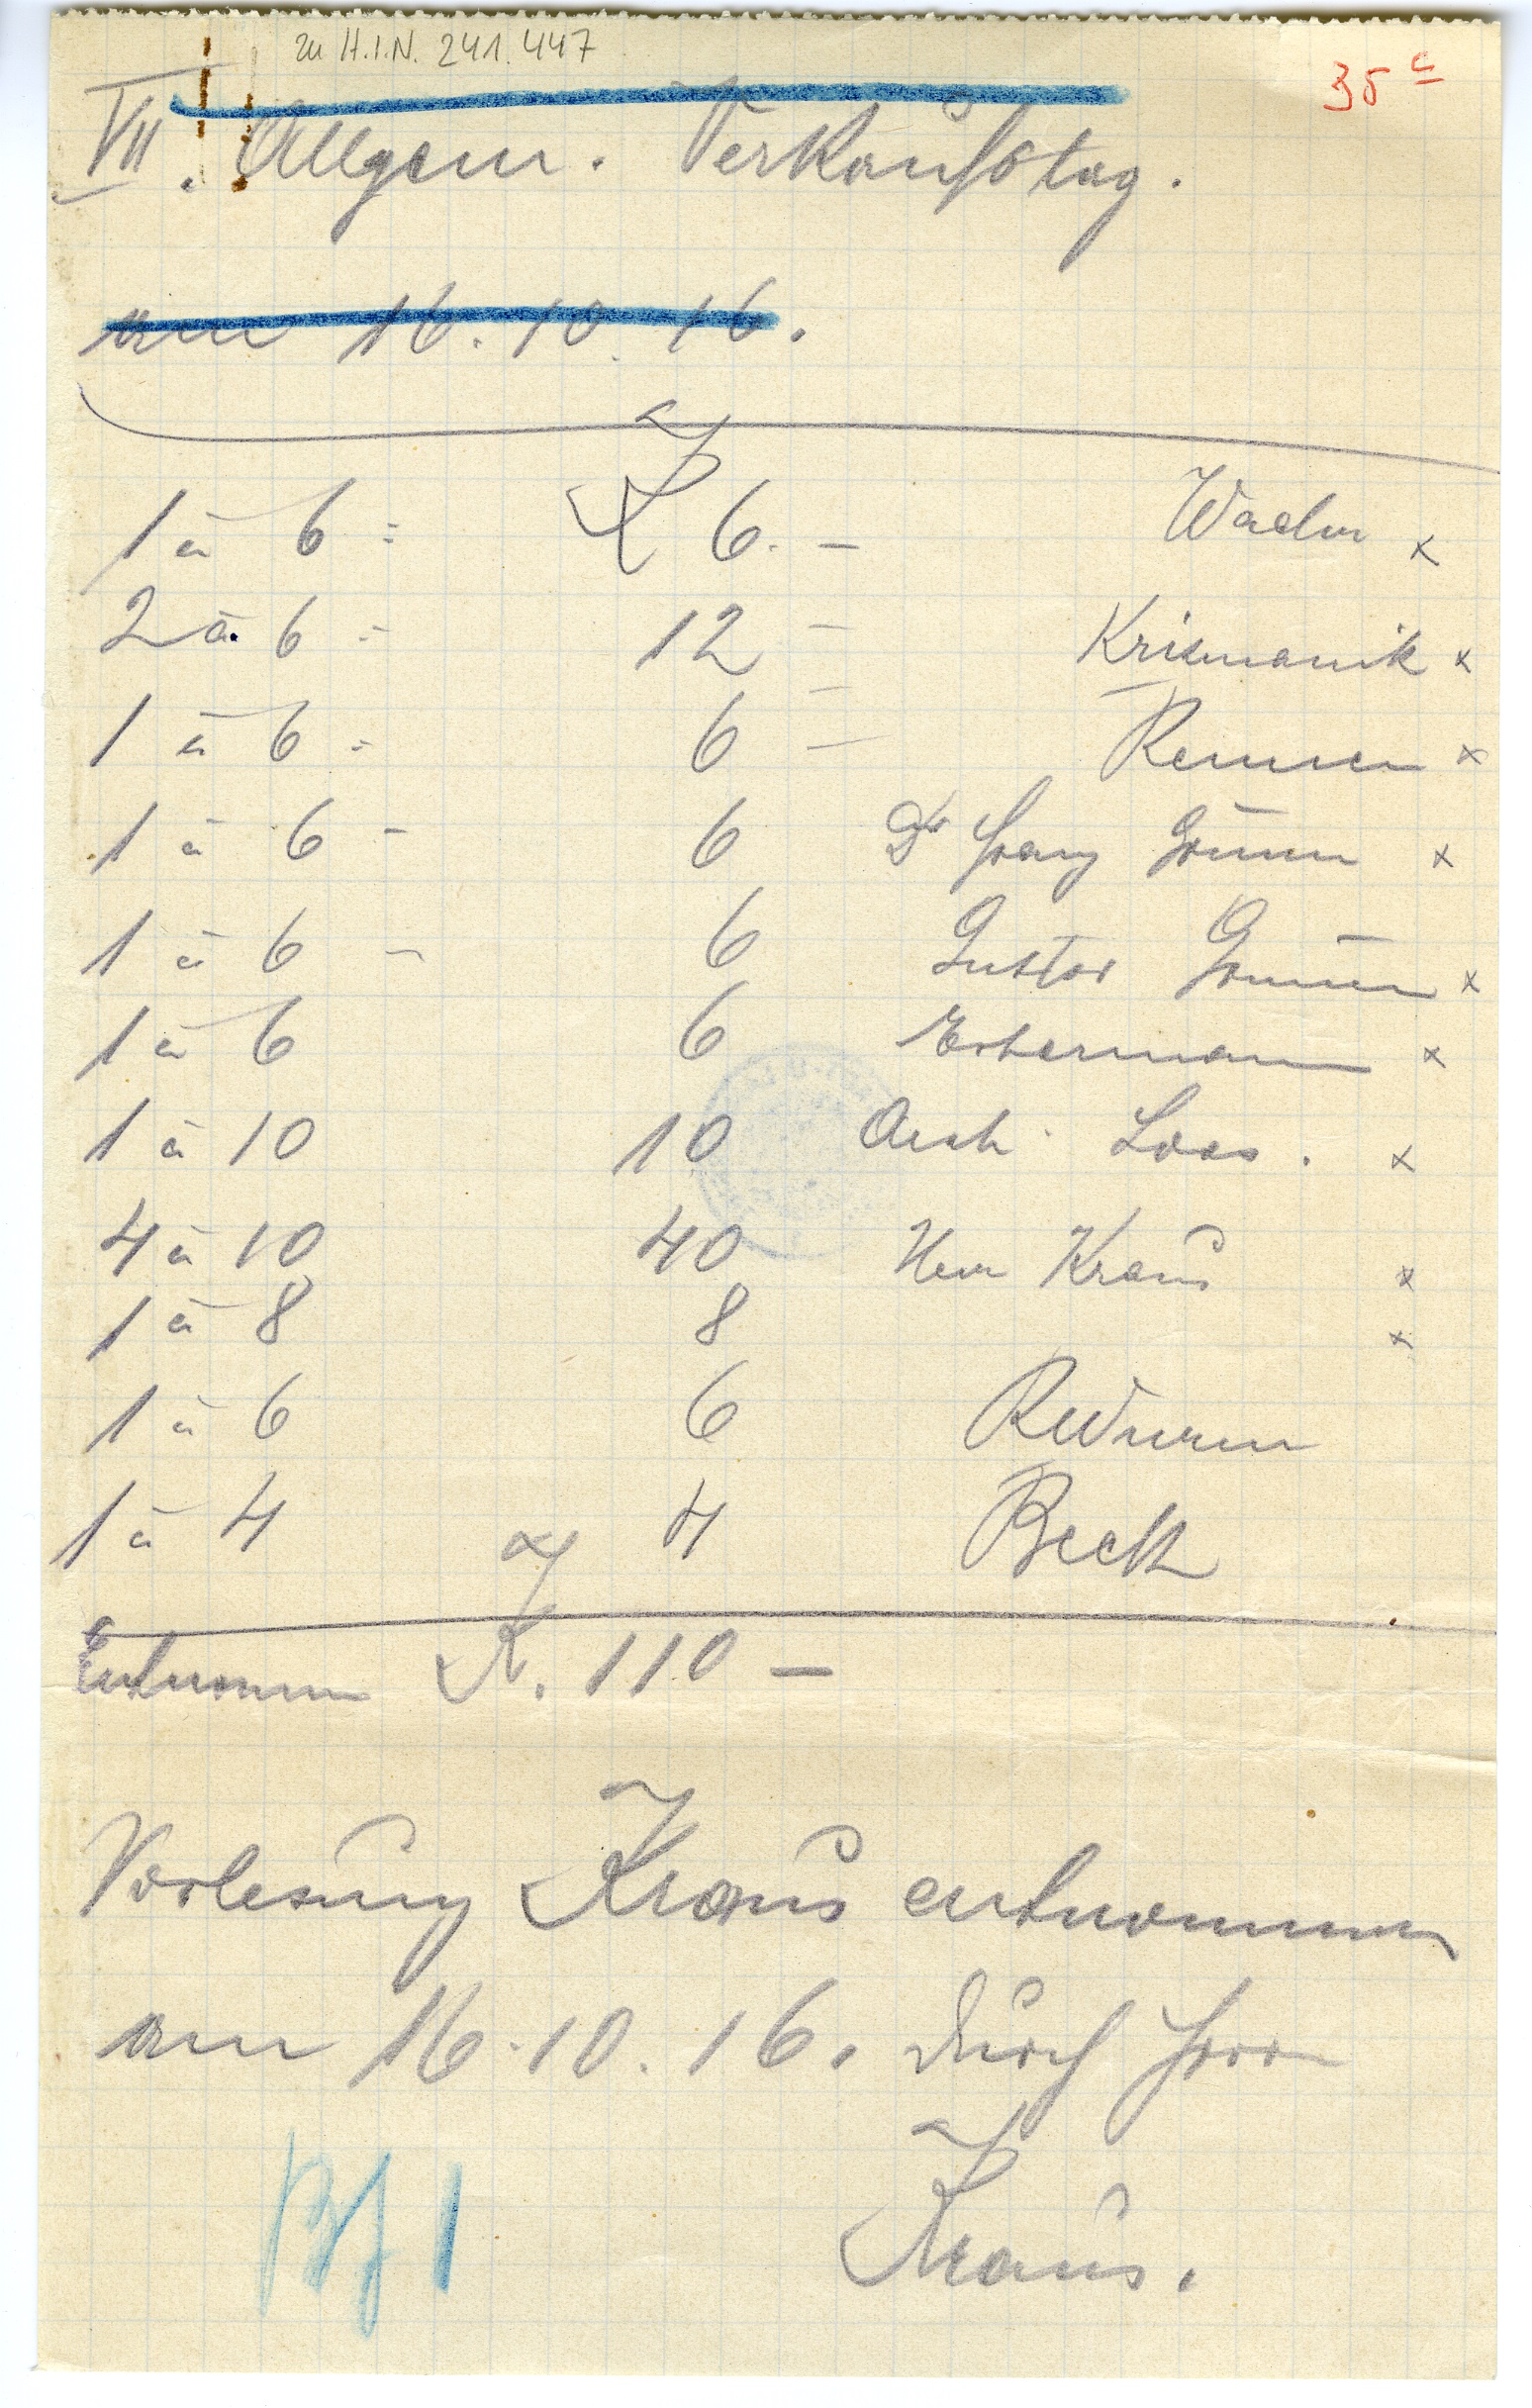 zu H.I.N. 241.447
35 c
VII. Allgem. Verkaufstag.
am 16.10.16.
1 à 6 = K 6.— x
2 à 6 = 12 — Krismanik x
1 à 6 = 6 — x
1 à 6 - 6 Dr Franz x
1 à 6 - 6 Gustav x
1 à 6 6 x
1 à 10 10 Arch. Loos. x
4 à 10 40 Herr Kraus x
1 à 8 8 x
1 à 6 6
1 à 4 4 Beck
Entnommen K. 110 —
Vorlesung Kraus entnommen
am 16.10.16. durch Herrn
Kraus.